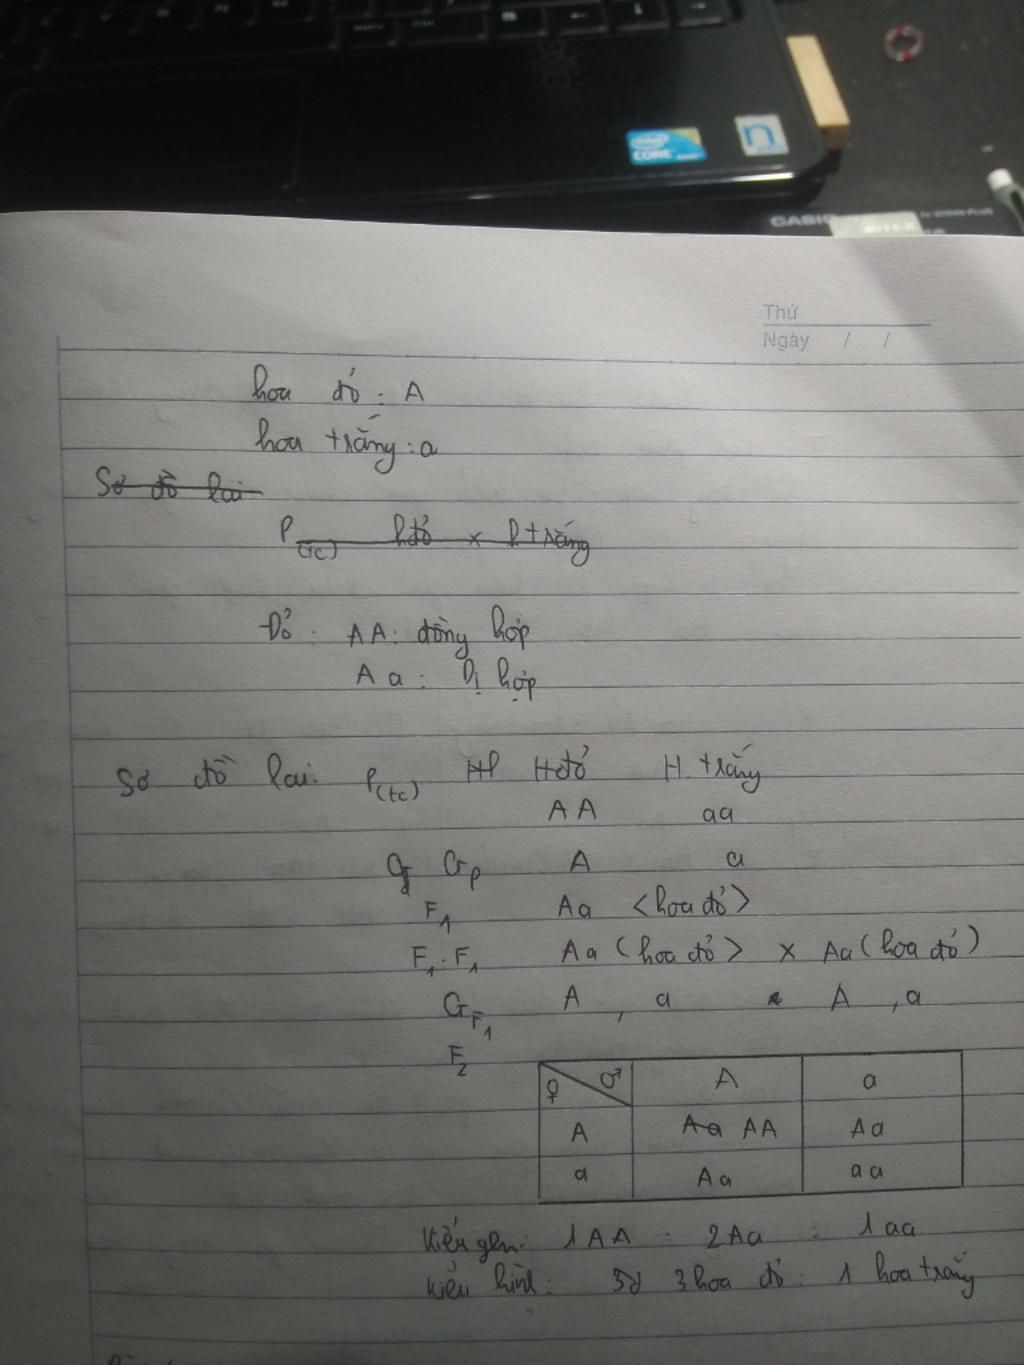 intel
CORE
n
CASIO
BITEX
Thứ
Ngày / /
hoa đỏ : A
hoa trắng : a
Sơ đồ lai
P(tc) hđỏ x h trắng
Đỏ : AA : đồng hợp
Aa : Dị hợp
Sơ đồ lai: P(tc) H đỏ H. trắng
AA aa
GP A a
F1 Aa <hoa đỏ>
F1 . F1 Aa (hoa đỏ> x Aa (hoa đỏ)
GF1 A , a A , a
F2
♀ ♂ A a
A Aa AA Aa
a Aa aa
Kiểu gen: 1AA : 2Aa : 1aa
Kiểu hình: 3 hoa đỏ : 1 hoa trắng